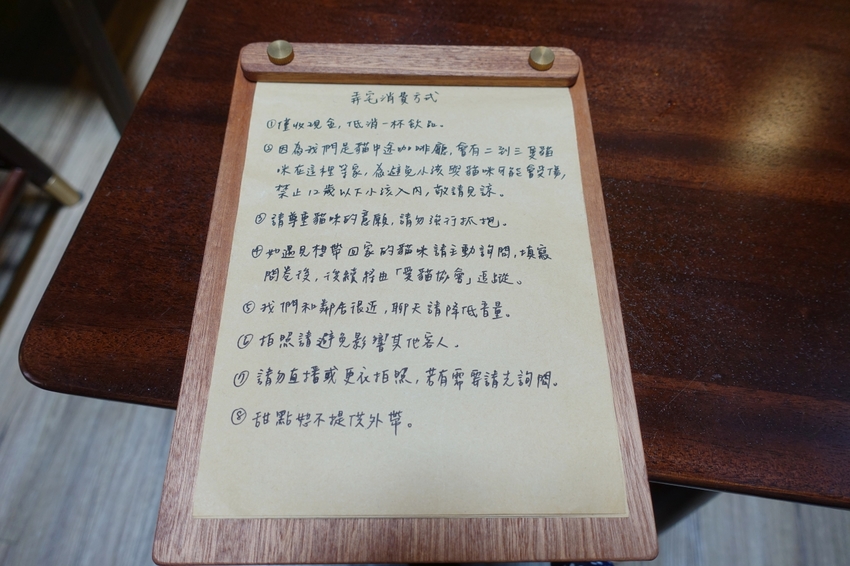 弄宅消費方式
①僅收現金，低消一杯飲品。
②因為我們是貓中途咖啡廳，會有二到三隻貓
咪在這裡等家，為避免小孩與貓咪可能會受傷，
禁止12歲以下小孩入內，敬請見諒。
③請尊重貓咪的意願，請勿強行抓抱。
④如遇見想帶回家的貓咪請主動詢問，填寫
問卷後，後續將由「愛貓協會」追蹤。
⑤我們和鄰居很近，聊天請降低音量。
⑥拍照請避免影響其他客人。
⑦請勿直播或更衣拍照，若有需要請先詢問。
⑧甜點恕不提供外帶。